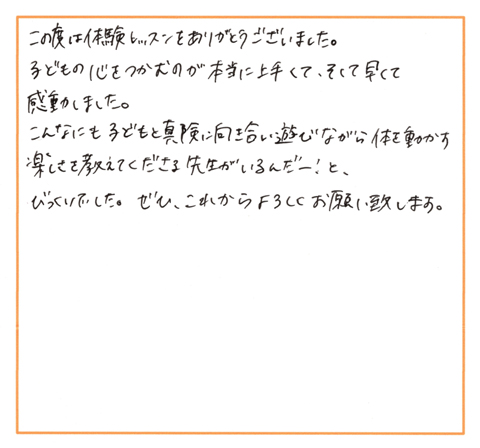 この度は体験レッスンをありがとうございました。
子どもの心をつかむのが本当に上手くて、そして早くて
感動しました。
こんなにも子どもと真険に向き合い遊びながら体を動かす
楽しさを教えてくださる先生がいるんだー！と、
びっくりでした。ぜひ、これからよろしくお願い致します。